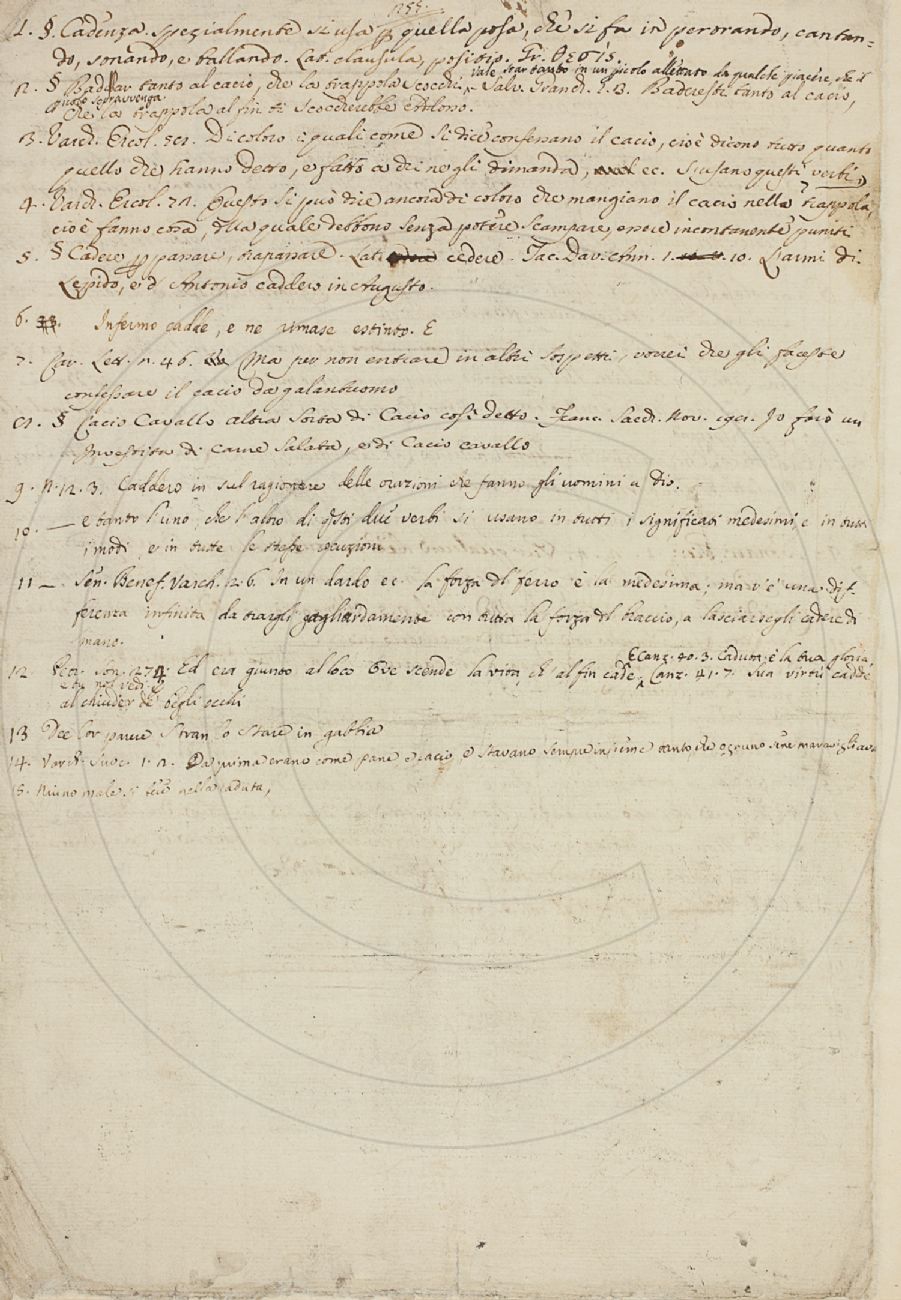 1255.
1. §. Cadenza. spezialmente si usa p quella posa, che si fa in perorando, cantan=
do, sonando, e ballando. Lat. clausula, positio. Gr.
vale star tanto in un picolo allettato da qualche piacere, che il
2. § Badar tanto al cacio, che la trappola scocchi, Salv. Granch. 2. 3. Baderesti tanto al cacio,
sopravvenga.
che la trappola al fin ti scoccherebbe addosso.
3. Varch. Ercol. Di coloro i quali come si dice confessano il cacio, cioè dicono tutto quanto
quello che hanno detto, e fatto a chi ne gli dimanda, ec. si usano questi verbi,
4. Varch. Ercol. Questo si può dire ancora di coloro che mangiano il cacio nella trappola,
cioè fanno cosa, della quale debbono senza potere scampare, essere incontanente puniti
5. § Cadere p passare, trapassare. Lat. cedere. Tac. Dav. Ann. 1. 10. L'armi di
Lepido, e d' Antonio caddero in Augusto.
6. Infermo cadde, e ne rimase estinto. E
7. Car. Lett. n. 46. Ma per non entrare in altri sospetti, vorrei che gli faceste
confessare il cacio da galantuomo
8. § Cacio Cavallo altra sorta di Cacio così detto. Franc. Sacch. Nov. Io farò un
investita di carne salata, e di Cacio cavallo
9. N. 12. 3. Caddero in sul ragionare delle orazioni che fanno gli uomini a Dio.
10. — e tanto l'uno che l'altro di qsti due verbi si usano in tutti i significati medesimi, e in tutti
i modi, e in tutte le stesse locuzioni
11 — Sen. Benef. Varch. 2. 6. In un dardo ec. la forza del ferro è la medesima; ma v'è una dif-
ferenza infinita da trargli gagliardamente con tutta la forza del braccio, a lasciarsegli cadere di
mano.
E Canz. 40. 3. Caduta è la tua gloria,
12. Petr. son. 274. Ed era giunto al loco Ove scende la vita, ch' al fin cade, Canz. 41. 7. Sua virtù cadde
e tu nol vedi. E
al chiuder de' begli occhi
13 Dee lor parere stran lo stare in gabbia
14. Varch. Suoc. 1. 2. Da prima erano come pane e cacio, e stavano sempre insieme tanto, che ognuno se ne maravigliava
15. Niuno male si fece nella caduta,